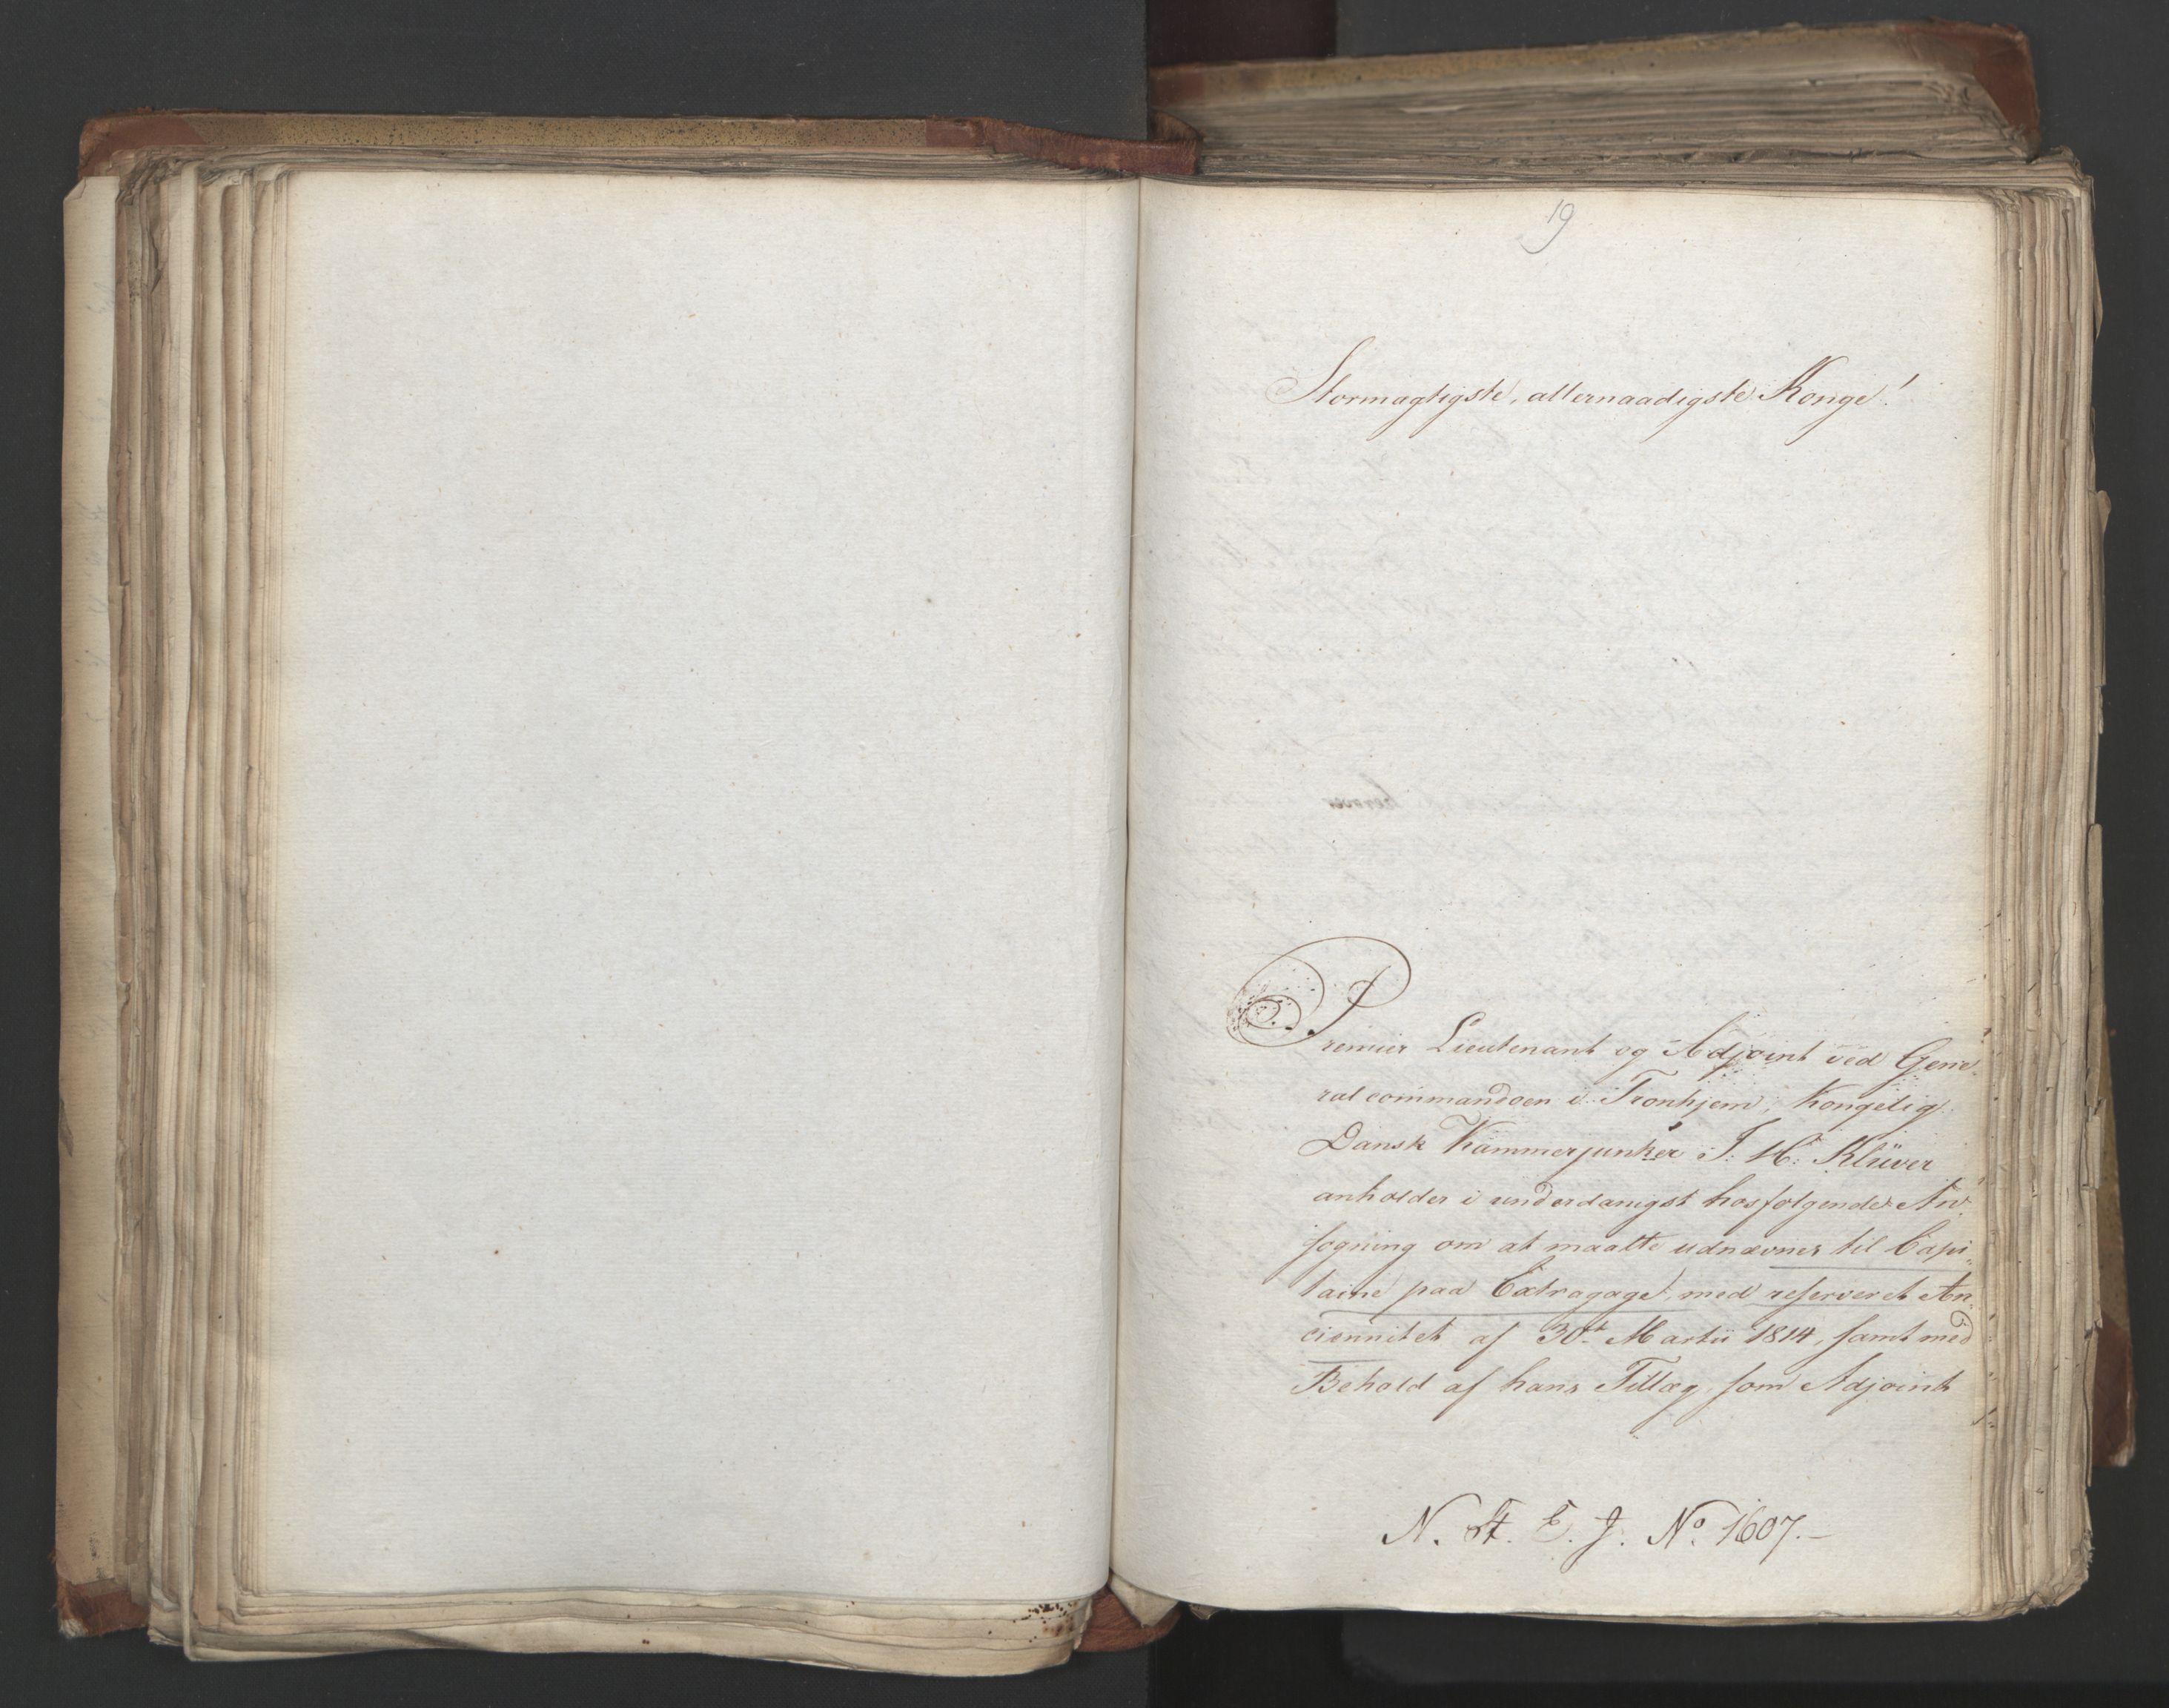 19
Stormægtigste, allernaadigste Konge!
Premier Lieutenant og Adjoint ved Gene-
ralcommandoen i Tronhjem, Kongelig
Dansk Kammerjunker J: H: Klüwer
anholder i underdanigst hosfølgende An-
søgning om at maatte udnævnes til Capi-
taine paa Extragage, med reserveret An-
ciennitet af 30te Martii 1814, samt med
Behold af hans Tillæg som Adjoint
N. St. E. J. No. 1607.-